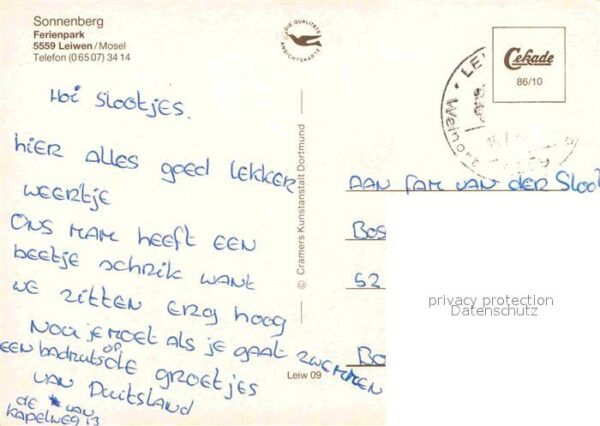 Sonnenberg
Ferienpark
5559 Leiwen/Mosel
Telefon (06507) 3414
DIE QUALITÄTS
ANSICHTSKARTE
Cekade
86/10
Weinort
Hoi Slootjes.
hier alles goed lekker
weertje
Ons mam heeft een
beetje schrik want
we zitten erg hoog
Nou je moet als je gaat zwemmen
een badmuts op
de groetjes
van Duitsland
de van
Kapelweg 13
© Cramers Kunstanstalt Dortmund
Leiw 09
Aan fam van der Sloo
Bos
52
Bo
privacy protection
Datenschutz